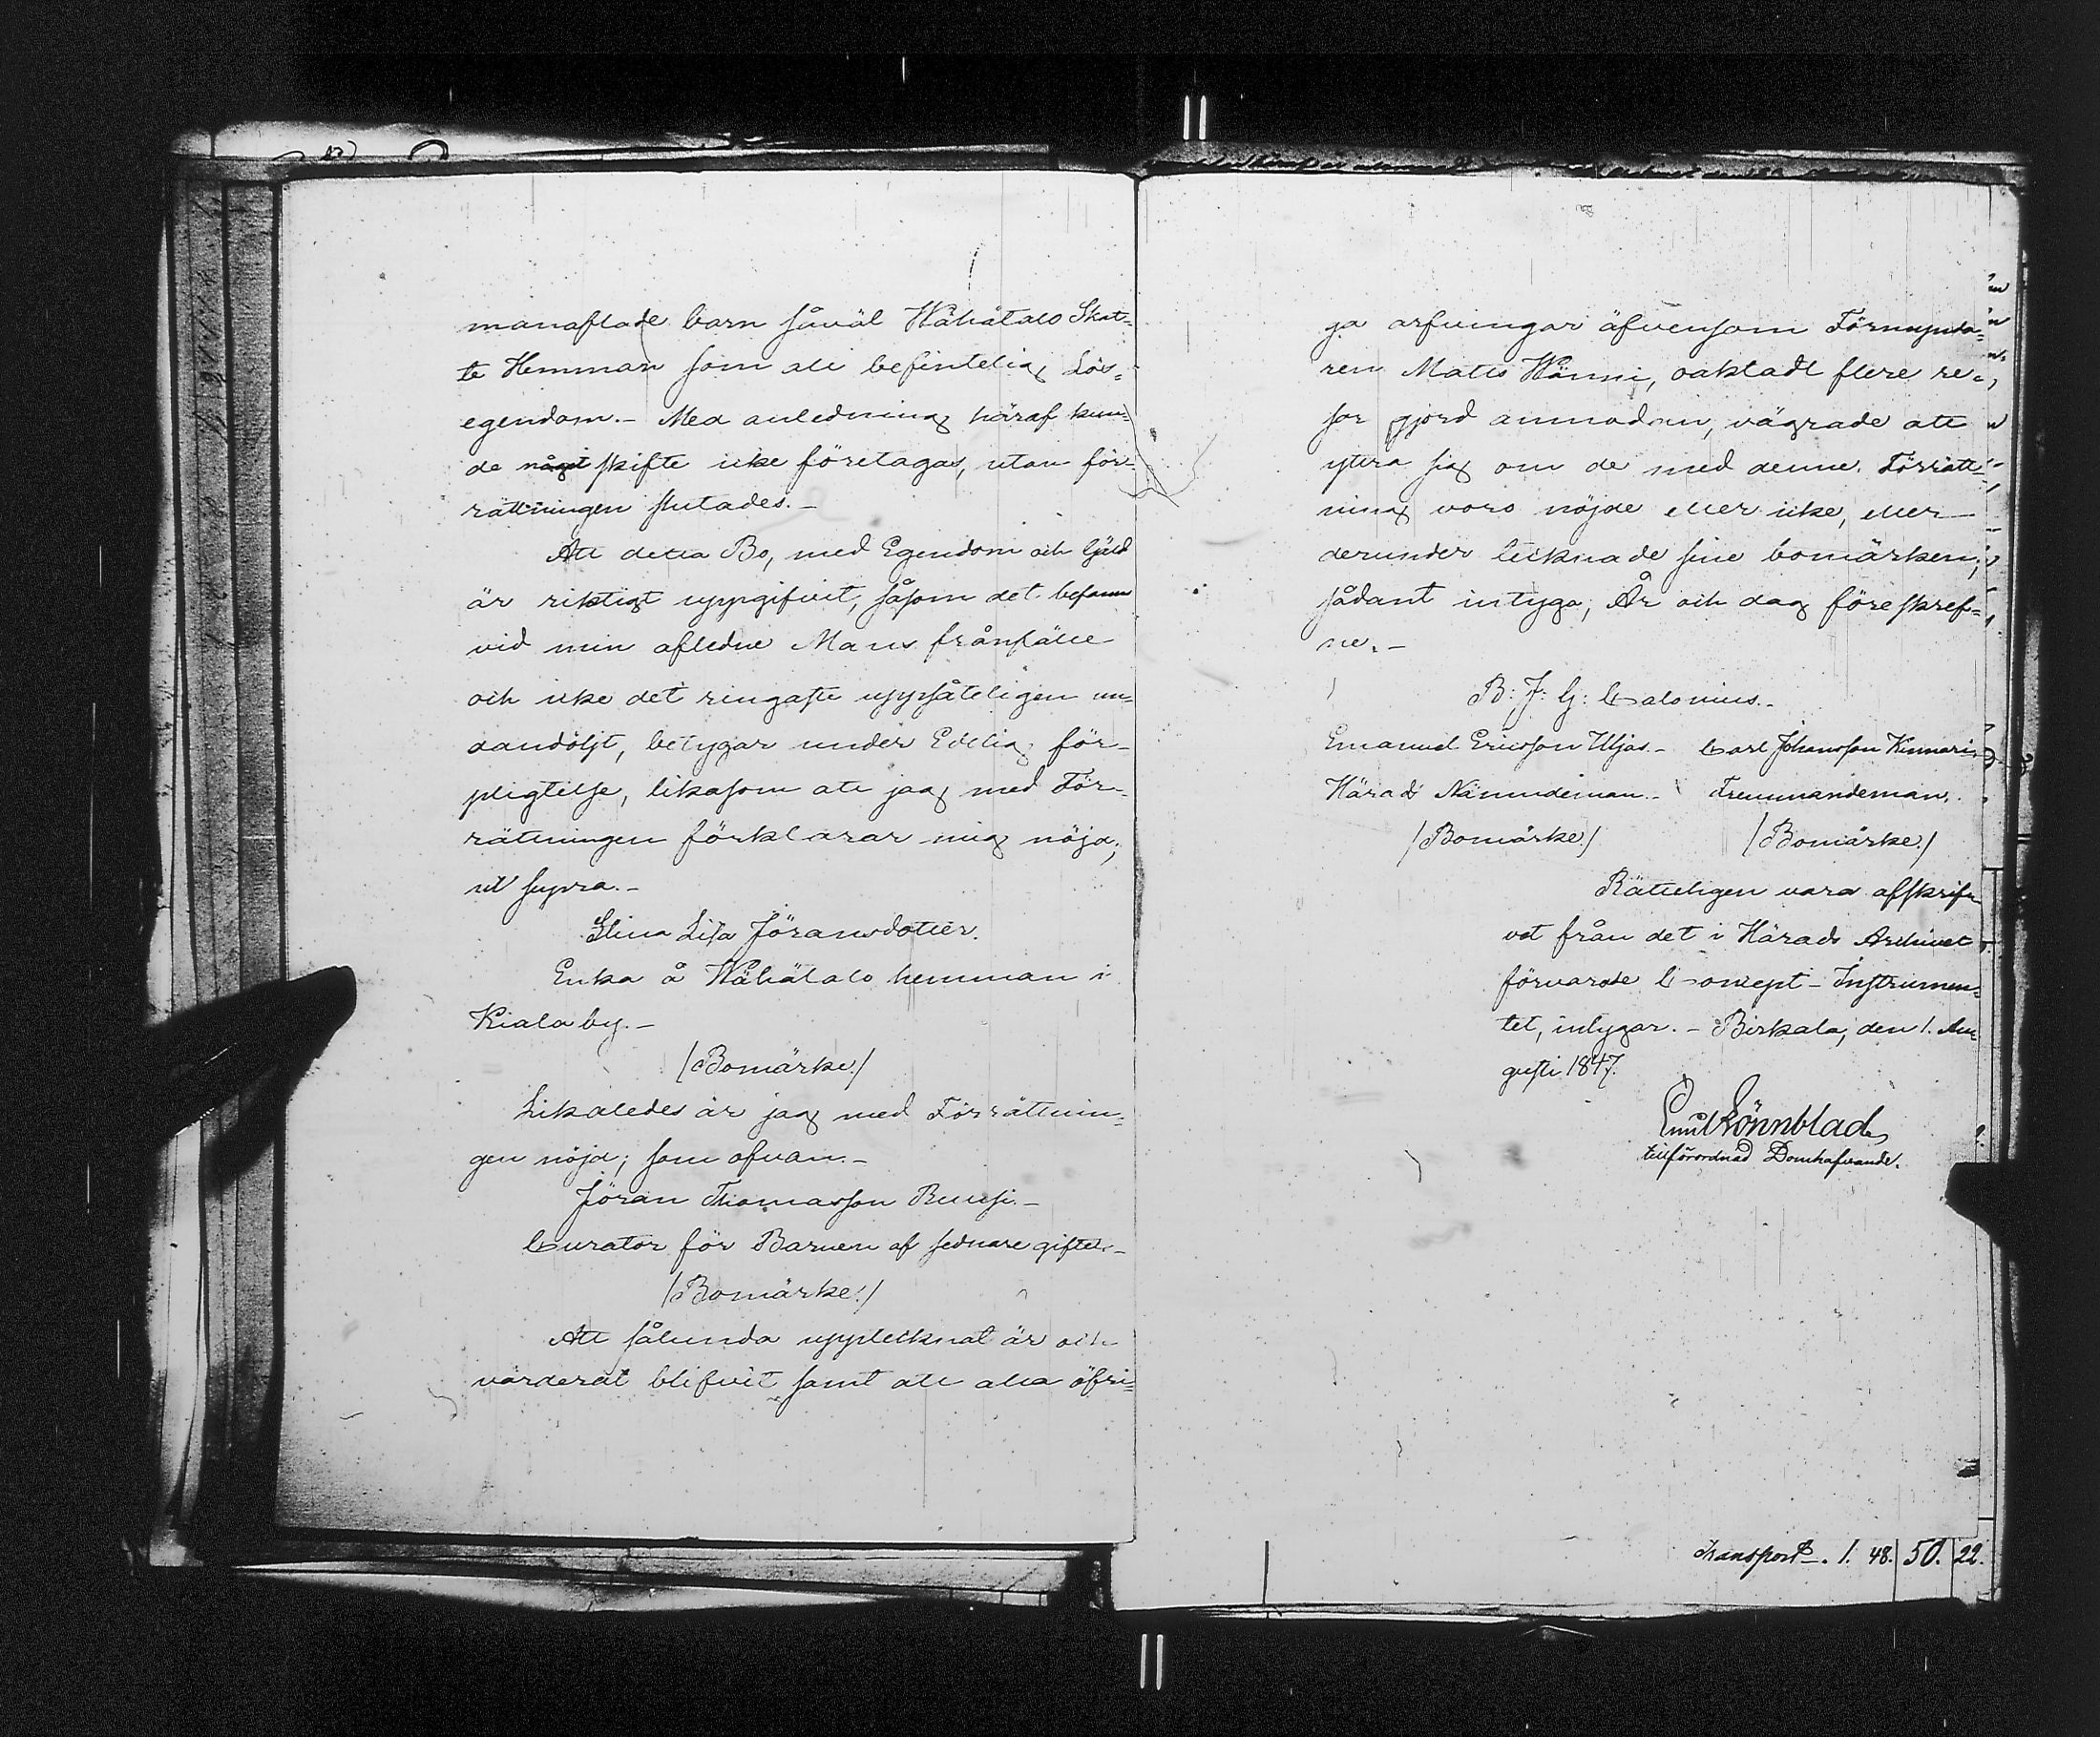 manaflade barn såväl Wähätalo Skat-
te Hemman som all befintelig Lös-
egendom. - Med anledning häraf kun-
de något skifte icke företagas, utan för-
rättningen slutades. -
Att detta Bo, med Egendom och Gjäld
är riktigt uppgifvit, såsom det befanns
vid min afledne Mans frånfälle
och icke det ringaste uppsåteligen un-
dandöljt, betygar under Edelig för-
pligtelse, likasom att jag med För-
rättningen förklarar mig nöjd;
ut supra. -
Stina Lisa Jöransdotter.
Enka å Wähätalo hemman i
Kiala by. -
/Bomärke/
Likaledes är jag med Förrättnin-
gen nöjd; som ofvan. -
Jöran Thomasson Ruusi. -
Curator för Barnen af sednare giftet. -
/Bomärke./
Att sålunda upptecknat är och
värderat blifvit samt att alla öfri-
ga arfvingar äfvensom Förmynda-
ren Matts Wänni, oaktadt flere re-
sor gjord anmodan, vägrade att
yttra sig om de med denne Förrätt-
ning voro nöjde eller icke, eller
derunder teckna de sine bomärken;
sådant intyga; År och dag föreskref-
ne. -
B: J: G: Calonius. -
Emanuel Ericsson Uljas. - Carl Johansson Kinnari,
Härads Nämndeman. - Fremmandeman.
/Bomärke./ /Bomärke./
Rätteligen vara afskrif-
vet från det i Härads Archivet
förvarade Concept-Instrumen-
tet, intygar. - Birkala, den 1. Au-
gusti 1847.
Emil Rönnblad
tillförordnad Domhafvande.
Transport. 1. 48. 50. 22.